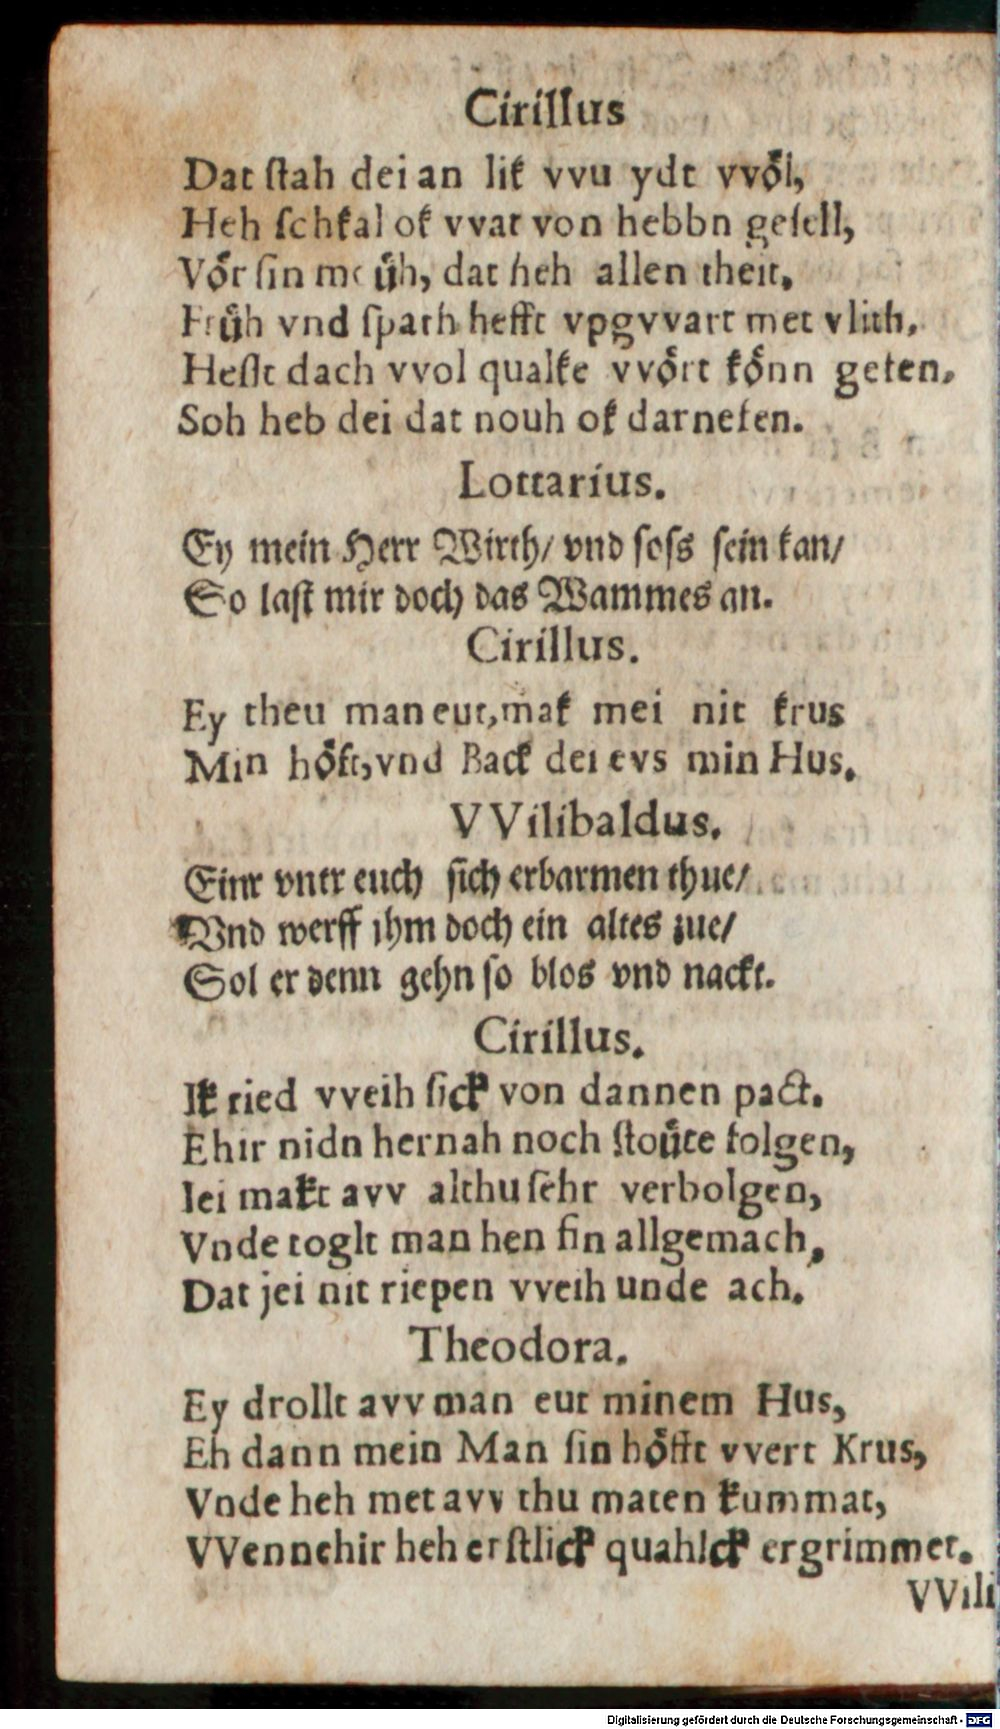 Cirillus
Dat ſtah dei an lik vvu ydt vvoͤl,
Heh ſchkal ok vvat von hebbn geſell,
Voͤr ſin me uͤh, dat heh allen theit,
Fruͤh vnd ſpath hefft vpgvvart met vlith,
Heſlt dach vvol qualke vvoͤrt koͤnn geten,
Soh heb dei dat nouh ok darneſen.
Lottarius.
Ey mein Herr Wirth/ vnd ſoſs ſein kan/
So laſt mir doch das Wammes an.
Cirillus.
Ey theu man eut, mak mei nit krus
Min hoͤft, vnd Back dei evs min Hus.
VVilibaldus.
Einr vntr euch ſich erbarmen thue/
Vnd werff ihm doch ein altes zue/
Sol er denn gehn ſo blos vnd nackt.
Cirillus.
Ik ried vveih ſick von dannen pact.
Ehir nidn hernah noch ſtouͤte folgen,
Iei makt avv althu ſehr verbolgen,
Vnde toglt man hen fin allgemach,
Dat jei nit riepen vveih unde ach.
Theodora.
Ey drollt avv man eut minem Hus,
Eh dann mein Man ſin hoͤfft vvert Krus,
Vnde heh met avv thu maten kummat,
VVennehir heh erſtlick quahlck ergrimmet.
VVili
Digitalisierung gefördert durch die Deutsche Forschungsgemeinschaft - DFG